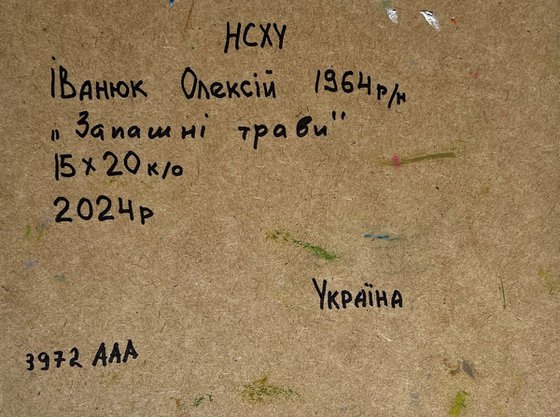 НСХУ
Іванюк Олексій 1964р/н
„Запашні трави"
15х20 к/о
2024р
Україна
3972 ААА